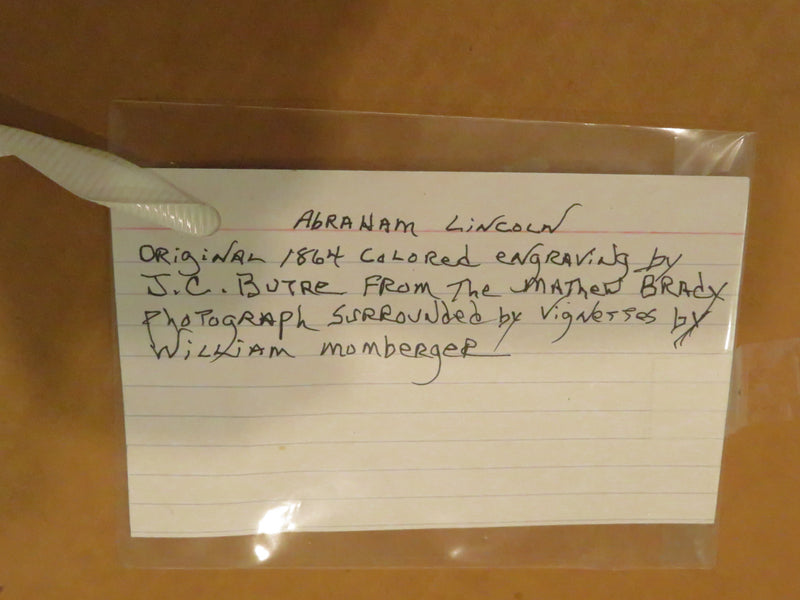 ABRAHAM LINCOLN
ORiginAL 1864 COLORed engRAVing by
J.C. BUTRE FROM The MATHEW BRADY
PhOTOGRAPH SURROUNded by VigneTTes by
WiLLiAM momberger